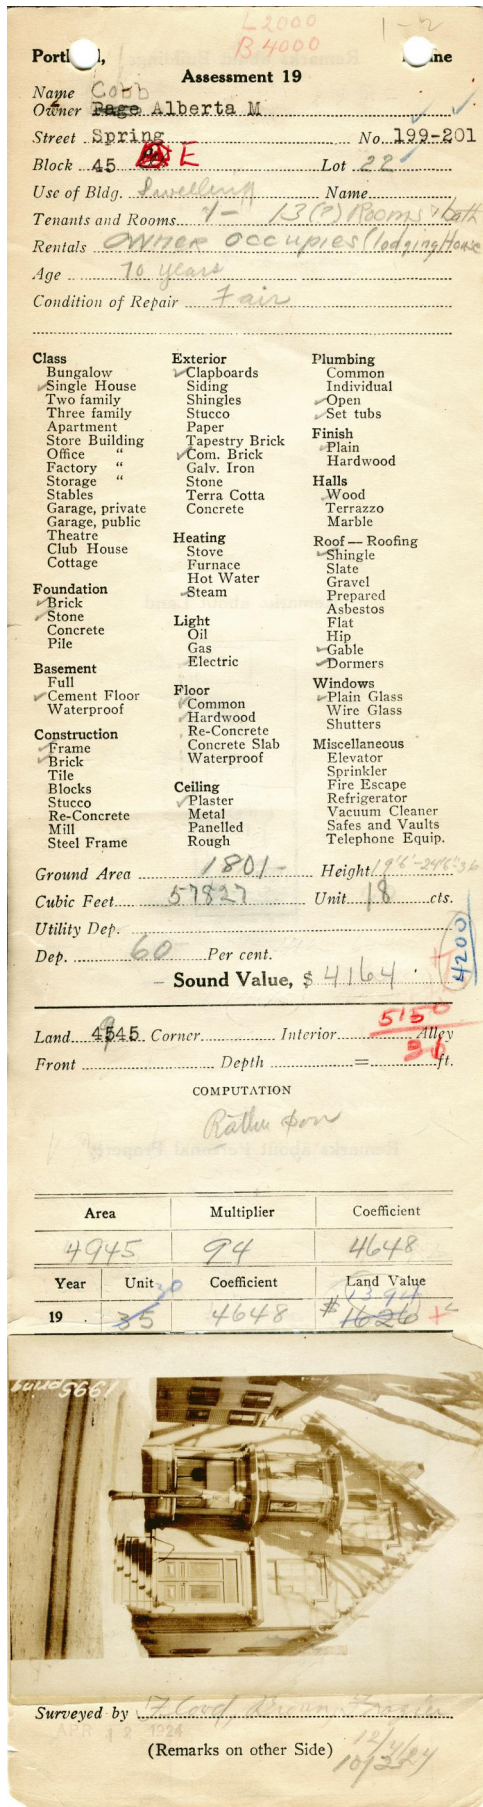 L 2000
B 4000
1-2
Portl d, ne
Assessment 19
Name Cobb
Owner Page Alberta M
Street Spring No. 199-201
Block 45 E Lot 22
Use of Bldg. Dwelling Name
Tenants and Rooms 1- 13(?) Rooms & bath
Rentals OWNER OCCUPIES (lodging House
Age 70 years
Condition of Repair Fair
Class
Bungalow
Single House
Two family
Three family
Apartment
Store Building
Office "
Factory "
Storage "
Stables
Garage, private
Garage, public
Theatre
Club House
Cottage
Foundation
Brick
Stone
Concrete
Pile
Basement
Full
Cement Floor
Waterproof
Construction
Frame
Brick
Tile
Blocks
Stucco
Re-Concrete
Mill
Steel Frame
Exterior
Clapboards
Siding
Shingles
Stucco
Paper
Tapestry Brick
Com. Brick
Galv. Iron
Stone
Terra Cotta
Concrete
Heating
Stove
Furnace
Hot Water
Steam
Light
Oil
Gas
Electric
Floor
Common
Hardwood
Re-Concrete
Concrete Slab
Waterproof
Ceiling
Plaster
Metal
Panelled
Rough
Plumbing
Common
Individual
Open
Set tubs
Finish
Plain
Hardwood
Halls
Wood
Terrazzo
Marble
Roof — Roofing
Shingle
Slate
Gravel
Prepared
Asbestos
Flat
Hip
Gable
Dormers
Windows
Plain Glass
Wire Glass
Shutters
Miscellaneous
Elevator
Sprinkler
Fire Escape
Refrigerator
Vacuum Cleaner
Safes and Vaults
Telephone Equip.
Ground Area 1801- Height 19'6"-24'6"-36
Cubic Feet 57827 Unit 18 cts.
Utility Dep.
Dep. 60 Per cent.
4200
Sound Value, $ 4164
5150
Land 4945 Corner Interior Alley
Front Depth = ft.
COMPUTATION
Area Multiplier Coefficient
4945 94 4648
Year Unit 30 Coefficient Land Value
1394
19 35 4648 $1626
199 Spring
Surveyed by
APR 12 1924
(Remarks on other Side)